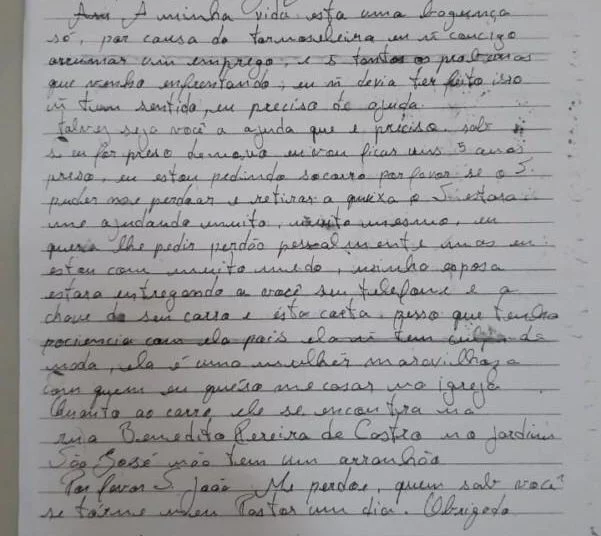 A minha vida esta uma bagunça
só, por causa da tornoseleira eu ñ concigo
arrumar um emprego, e s tantos os problemas
que venho enfrentando, eu ñ devia ter feito isso
ñ tem sentido, eu preciso de ajuda.
talvez seja você a ajuda que e preciso. sab
s eu for preso denovo eu vou ficar uns 5 anos
preso, eu estou pedindo socorro por favor se o S.
puder me perdoar e retirar a queixa o S. estara
me ajudando muito, muito mesmo, eu
queria lhe pedir perdão pessoalmente mas eu
estou com muito medo, minha esposa
estara entregando a você seu telefone e a
chave do seu carro e esta carta. peço que tenha
paciencia com ela pois ela ñ tem culpa de
nada, ela é uma mulher maravilhosa
com quem eu quero me casar na igreja
Quanto ao carro ele se encontra na
rua Benedito Pereira de Castro no jardim
São José não tem um arranhão
Por favor S. João Me perdoe, quem sab você
se torne meu Pastor um dia. Obrigado